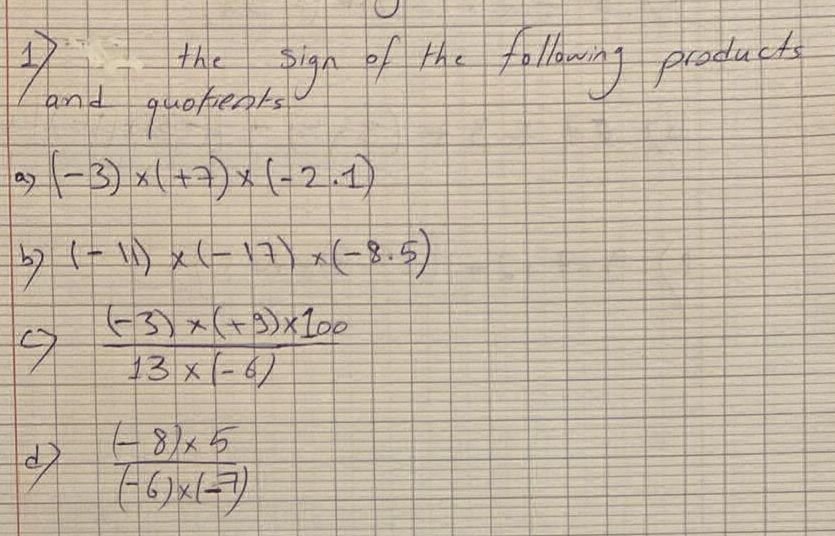 1) the sign of the following products
and quotients
a) (-3) ×(+7) × (-2.1)
b) (-11) × (-17) ×(-8.5)
c) (-3) ×(+9)×100
13 × (-6)
d) (-8)× 5
(-6)×(-7)